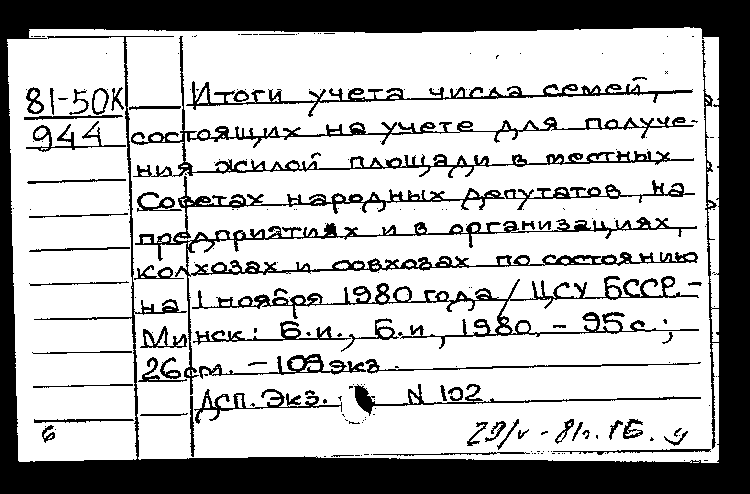 81-50К Итоги учета числа семей,
944 состоящих на учете для получе-
ния жилой площади в местных
Советах народных депутатов, на
предприятиях и в организациях,
колхозах и совхозах по состоянию
на 1 ноября 1980 года / ЦСУ БССР.-
Минск: Б.и., Б.и., 1980. - 95 с.;
26 см. - 109 экз.
Дсп. Экз. N 102.
6 29/V - 81г. ГБ.